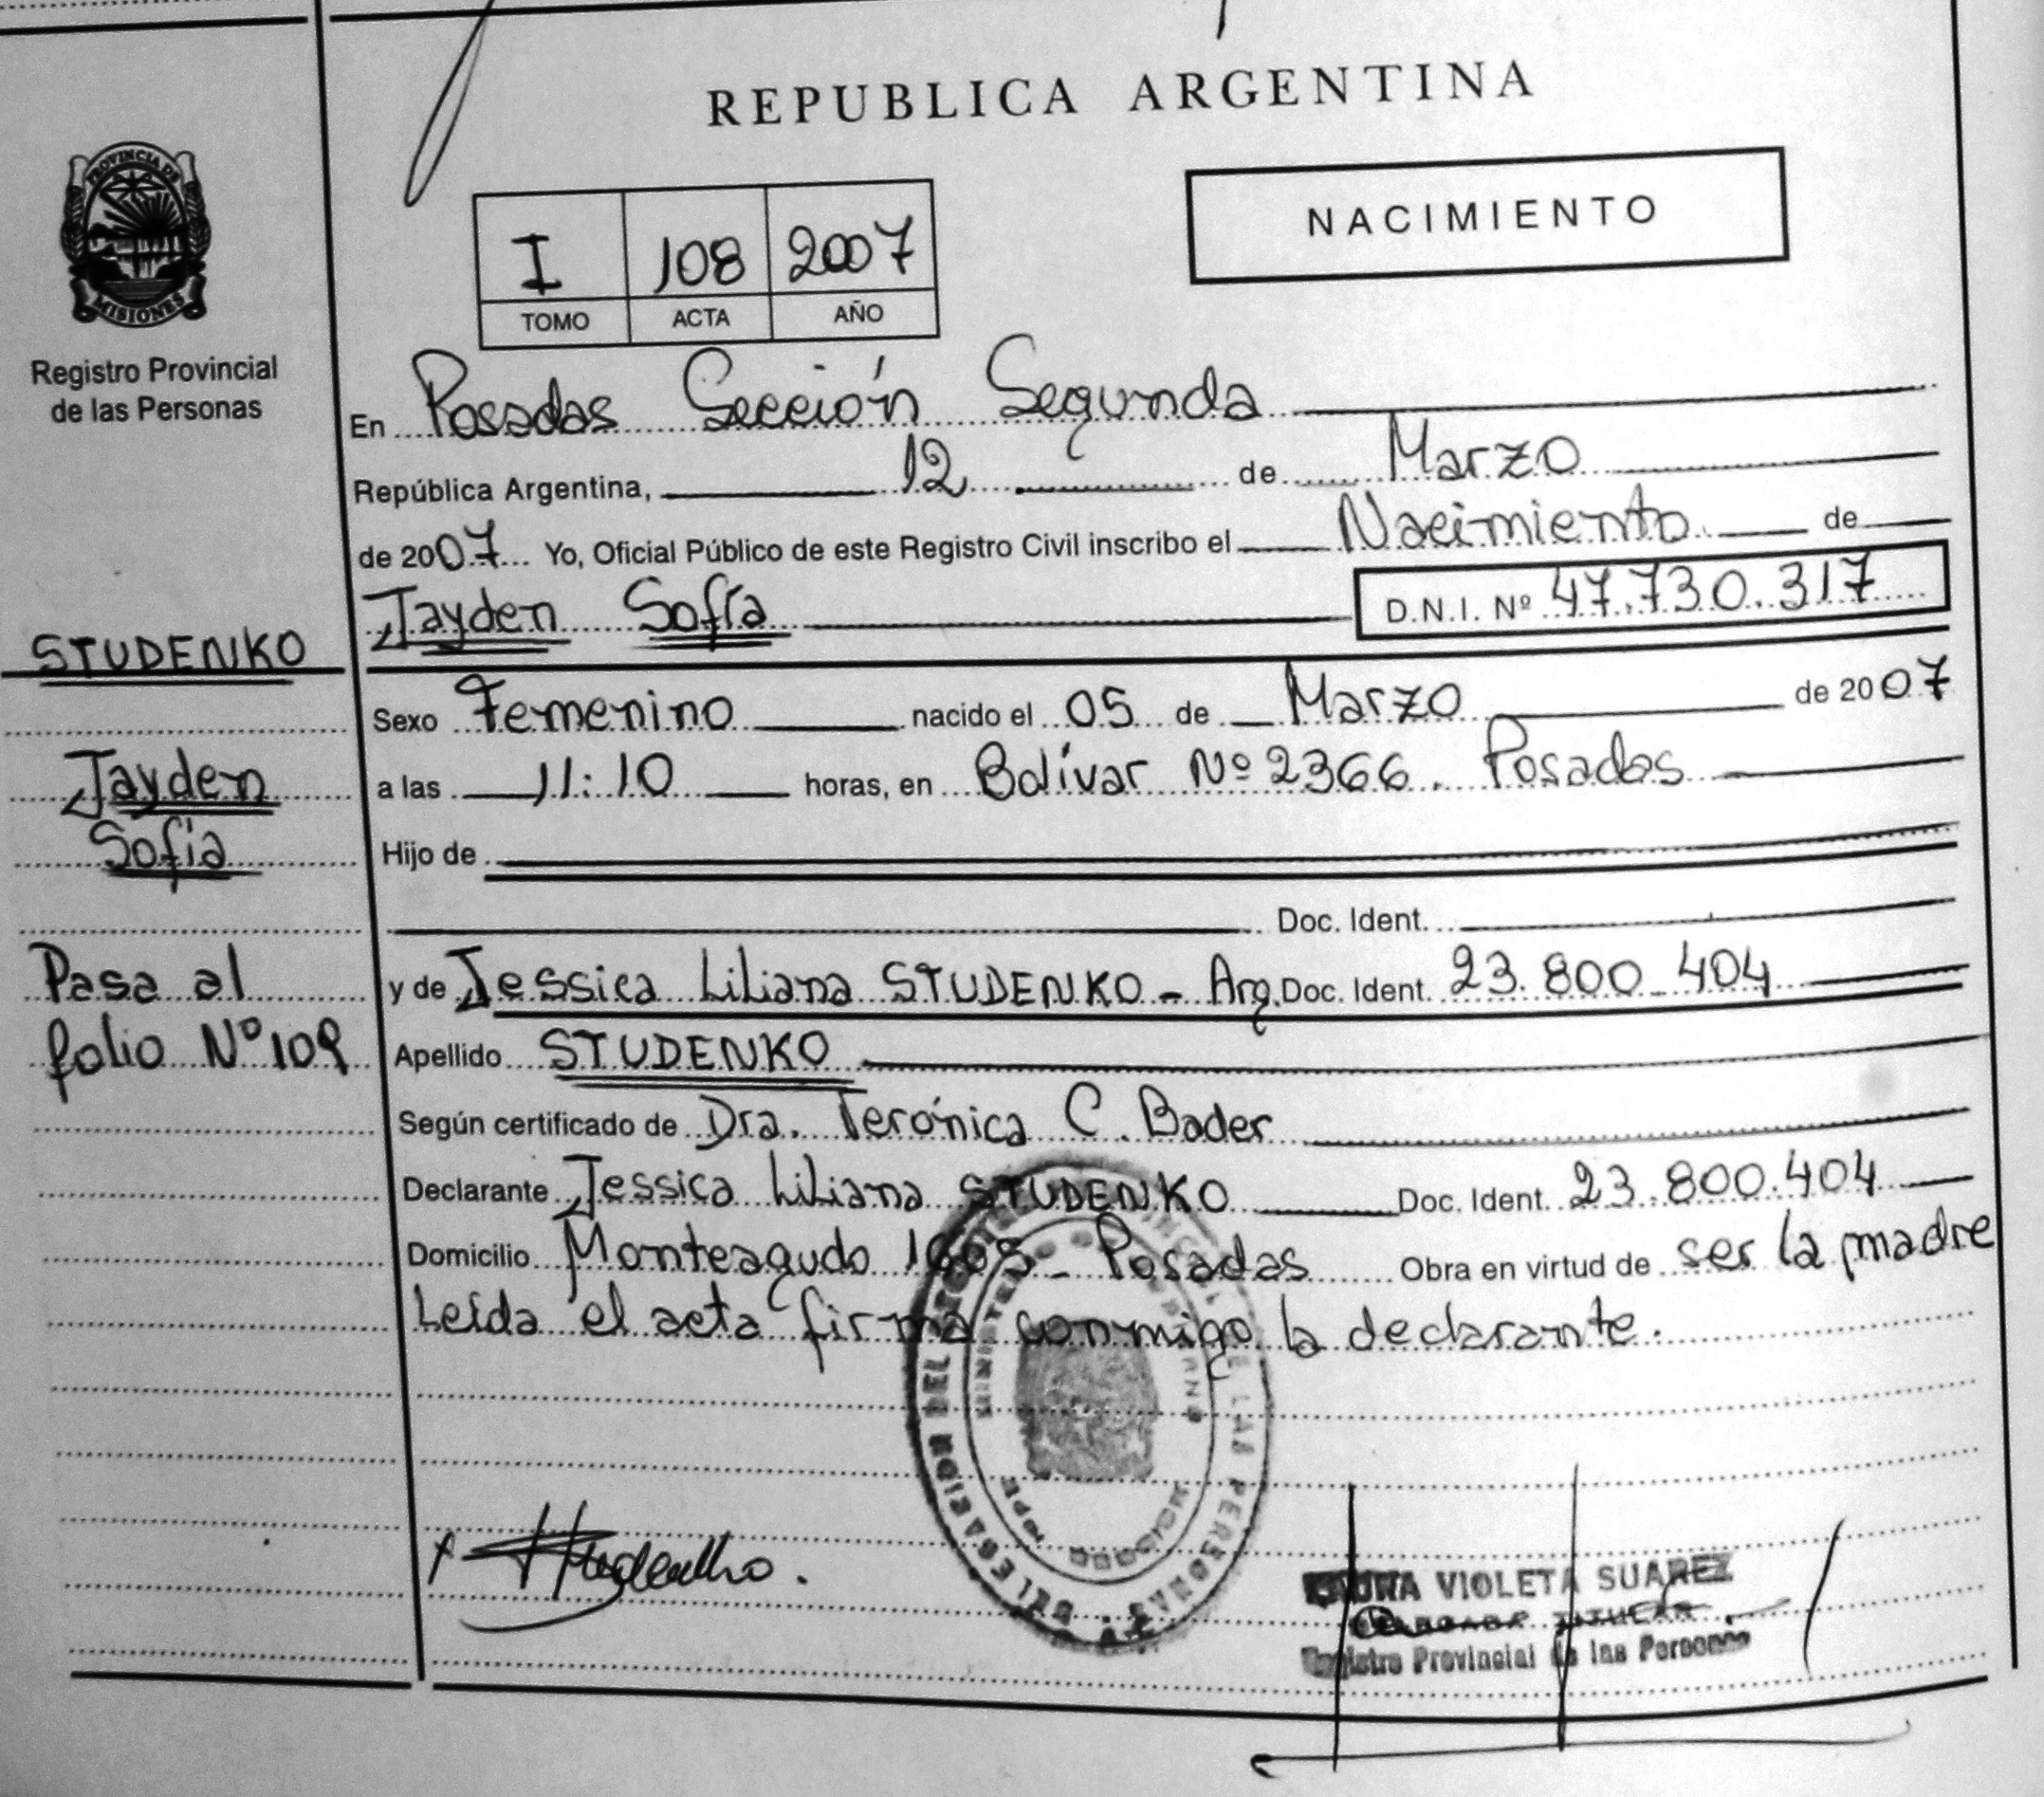 REPUBLICA ARGENTINA
PROVINCIA DE
MISIONES
Registro Provincial
de las Personas
NACIMIENTO
I 108 2007
TOMO ACTA AÑO
En Posadas Sección Segunda
República Argentina, 12 de Marzo
de 2007 Yo, Oficial Público de este Registro Civil inscribo el Nacimiento de
Jayden Sofía D.N.I. Nº 47.730.317
STUDENKO
Jayden
Sofía
Pasa al
folio Nº 109
Sexo Femenino nacido el 05 de Marzo de 2007
a las 11:10 horas, en Bolívar Nº 2366. Posadas
Hijo de
Doc. Ident.
y de Jessica Liliana STUDENKO - Arg. Doc. Ident. 23.800.404
Apellido STUDENKO
Según certificado de Dra. Verónica C. Bader
Declarante Jessica Liliana STUDENKO Doc. Ident. 23.800.404
Domicilio Monteagudo Posadas Obra en virtud de ser la madre
Leída el acta firma conmigo la declarante.
DELEGACION DEL DE LAS PERSONAS
VIOLETA SUAREZ
TITULAR
Registro Provincial de las Personas